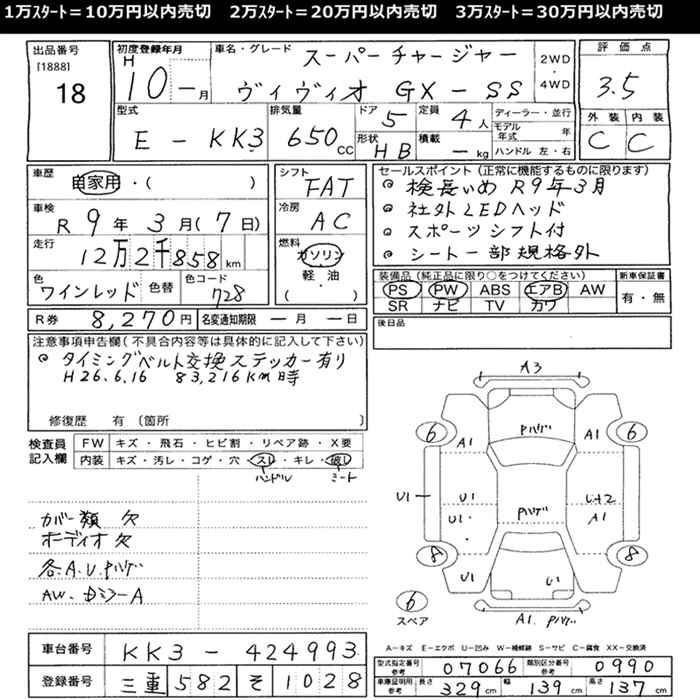 1万ｽﾀｰﾄ＝10万円以内売切　2万ｽﾀｰﾄ＝20万円以内売切　3万ｽﾀｰﾄ＝30万円以内売切
出品番号
[1888]
18
初度登録年月
H
10 － 月
車名・グレード
スーパーチャージャー
ヴィヴィオ GX－SS
2WD
・
4WD
評価点
3.5
型式
E － KK3
排気量
650 CC
ドア
5
定員
4 人
形状
HB
積載
－ kg
ディーラー・並行
モデル年式 年
ハンドル 左・右
外装 内装
C C
車歴
自家用・( )
車検
R 9 年 3 月(7 日)
走行
12万2千858 km
色
ワインレッド
色替
色コード
728
シフト
FAT
冷房
AC
燃料
ガソリン
軽・油
( )
セールスポイント (正常に機能するものに限ります)
検長いめ R9年3月
社外LEDヘッド
スポーツシフト付
シート一部規格外
装備品(純正品に限り○をつけてください)
PS PW ABS エアB AW
SR ナビ TV カワ
新車保証書
有・無
R券 8,270円
名変通知期限 － 月 － 日
後日品
注意事項申告欄(不具合内容等は具体的に記入して下さい)
タイミングベルト交換ステッカー有り
H26.6.16 83,216Km時
修復歴 有 〔箇所 〕
検査員
記入欄
FW キズ・飛石・ヒビ割・リペア跡・X要
内装 キズ・汚レ・コゲ・穴・スレ・キレ・破レ
ハンドル シート
カバー類 欠
オーディオ欠
各A.U.Pハゲ
AW.ドミラーA
A3
6 A1 Pハゲ A1 6
U1 U1 Pハゲ
U1・ A1
8 U1 U1 8
6
スペア
A1. Pハゲ
A－キズ E－エクボ U－凹み W－補修跡 S－サビ C－腐食 XX－交換済
車台番号
KK3 － 424993
登録番号
三重 582 そ 1028
型式指定番号
参考
07066
類別区分番号
参考
0990
車庫証明用
参考
長さ 329 cm 幅 139 cm 高さ 137 cm